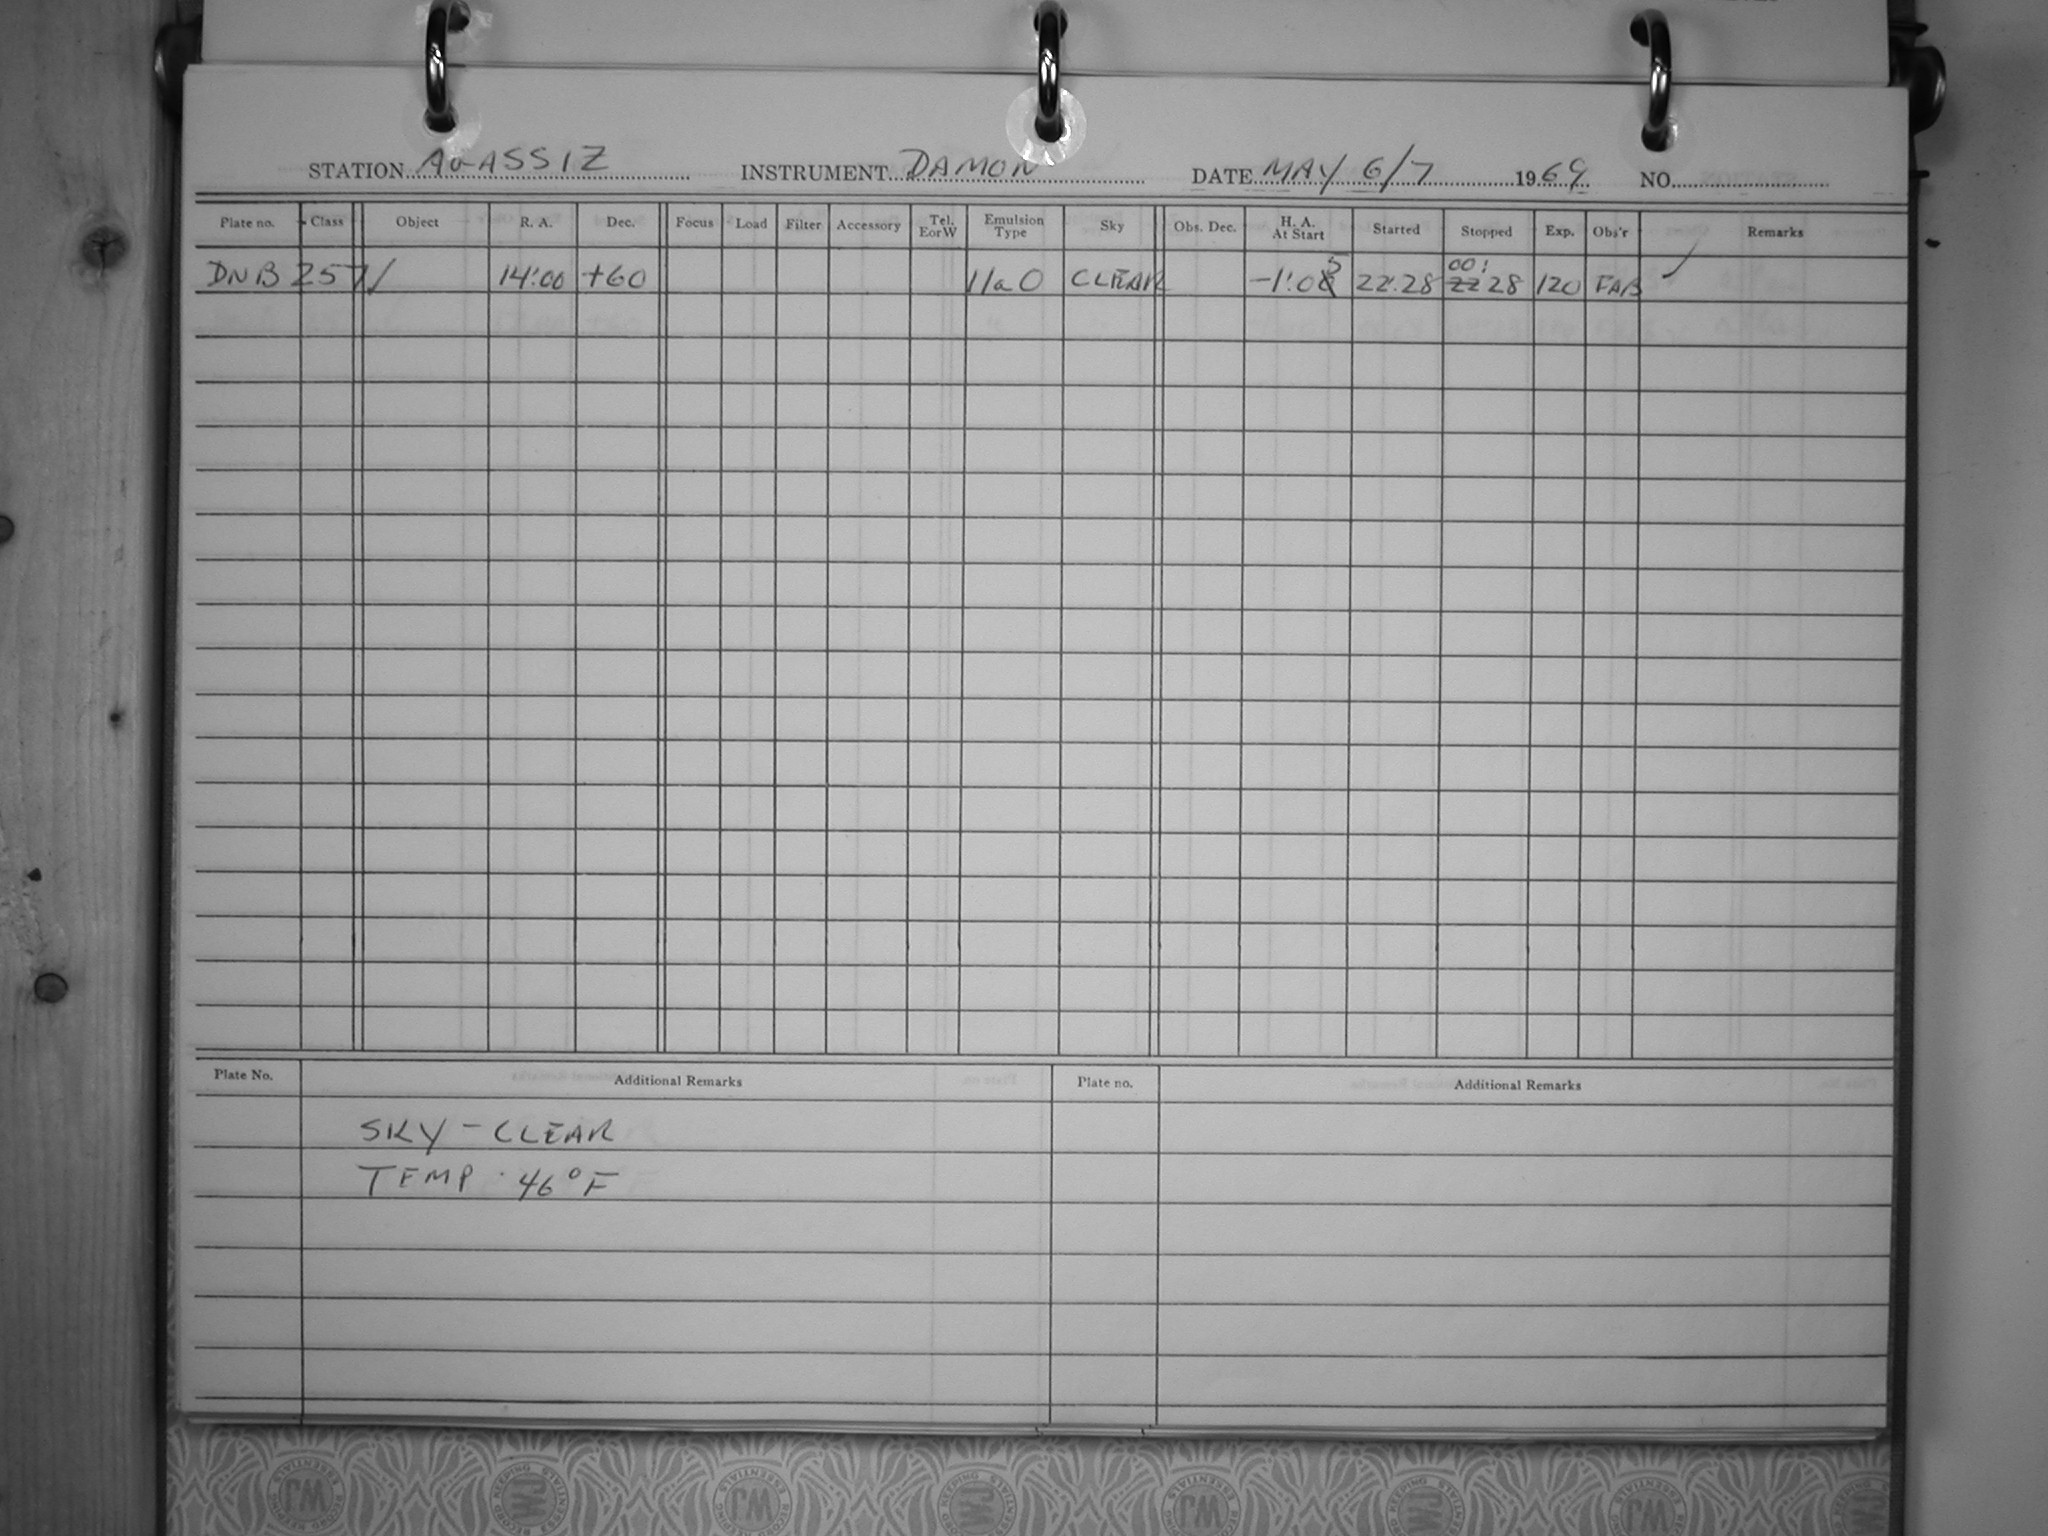 STATION AGASSIZ INSTRUMENT DAMON DATE MAY 6/7 1969 NO.
Plate no. Class Object R. A. Dec. Focus Load Filter Accessory Tel. EorW Emulsion Type Sky Obs. Dec. H. A. At Start Started Stopped Exp. Obs'r Remarks
00:
DNB 2571/ 14:00 +60 IIaO CLEAR -1:05 22:28 22 28 120 FAB ✓
Plate No. Additional Remarks Plate no. Additional Remarks
SKY - CLEAR
TEMP · 46°F